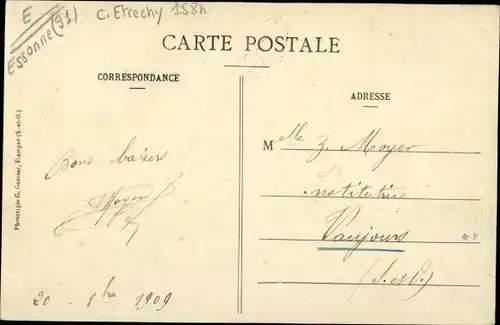 E
Essonne (91)
C. Etrechy 158h
CARTE POSTALE
CORRESPONDANCE
ADRESSE
Phototypie G. Garnier, Étampes (S.-et-O.)
Bons baisers
Moyer
20 - 8bre 1909
Melle Z. Moyer
Institutrice
Vaujours
(S. et O.)
* P